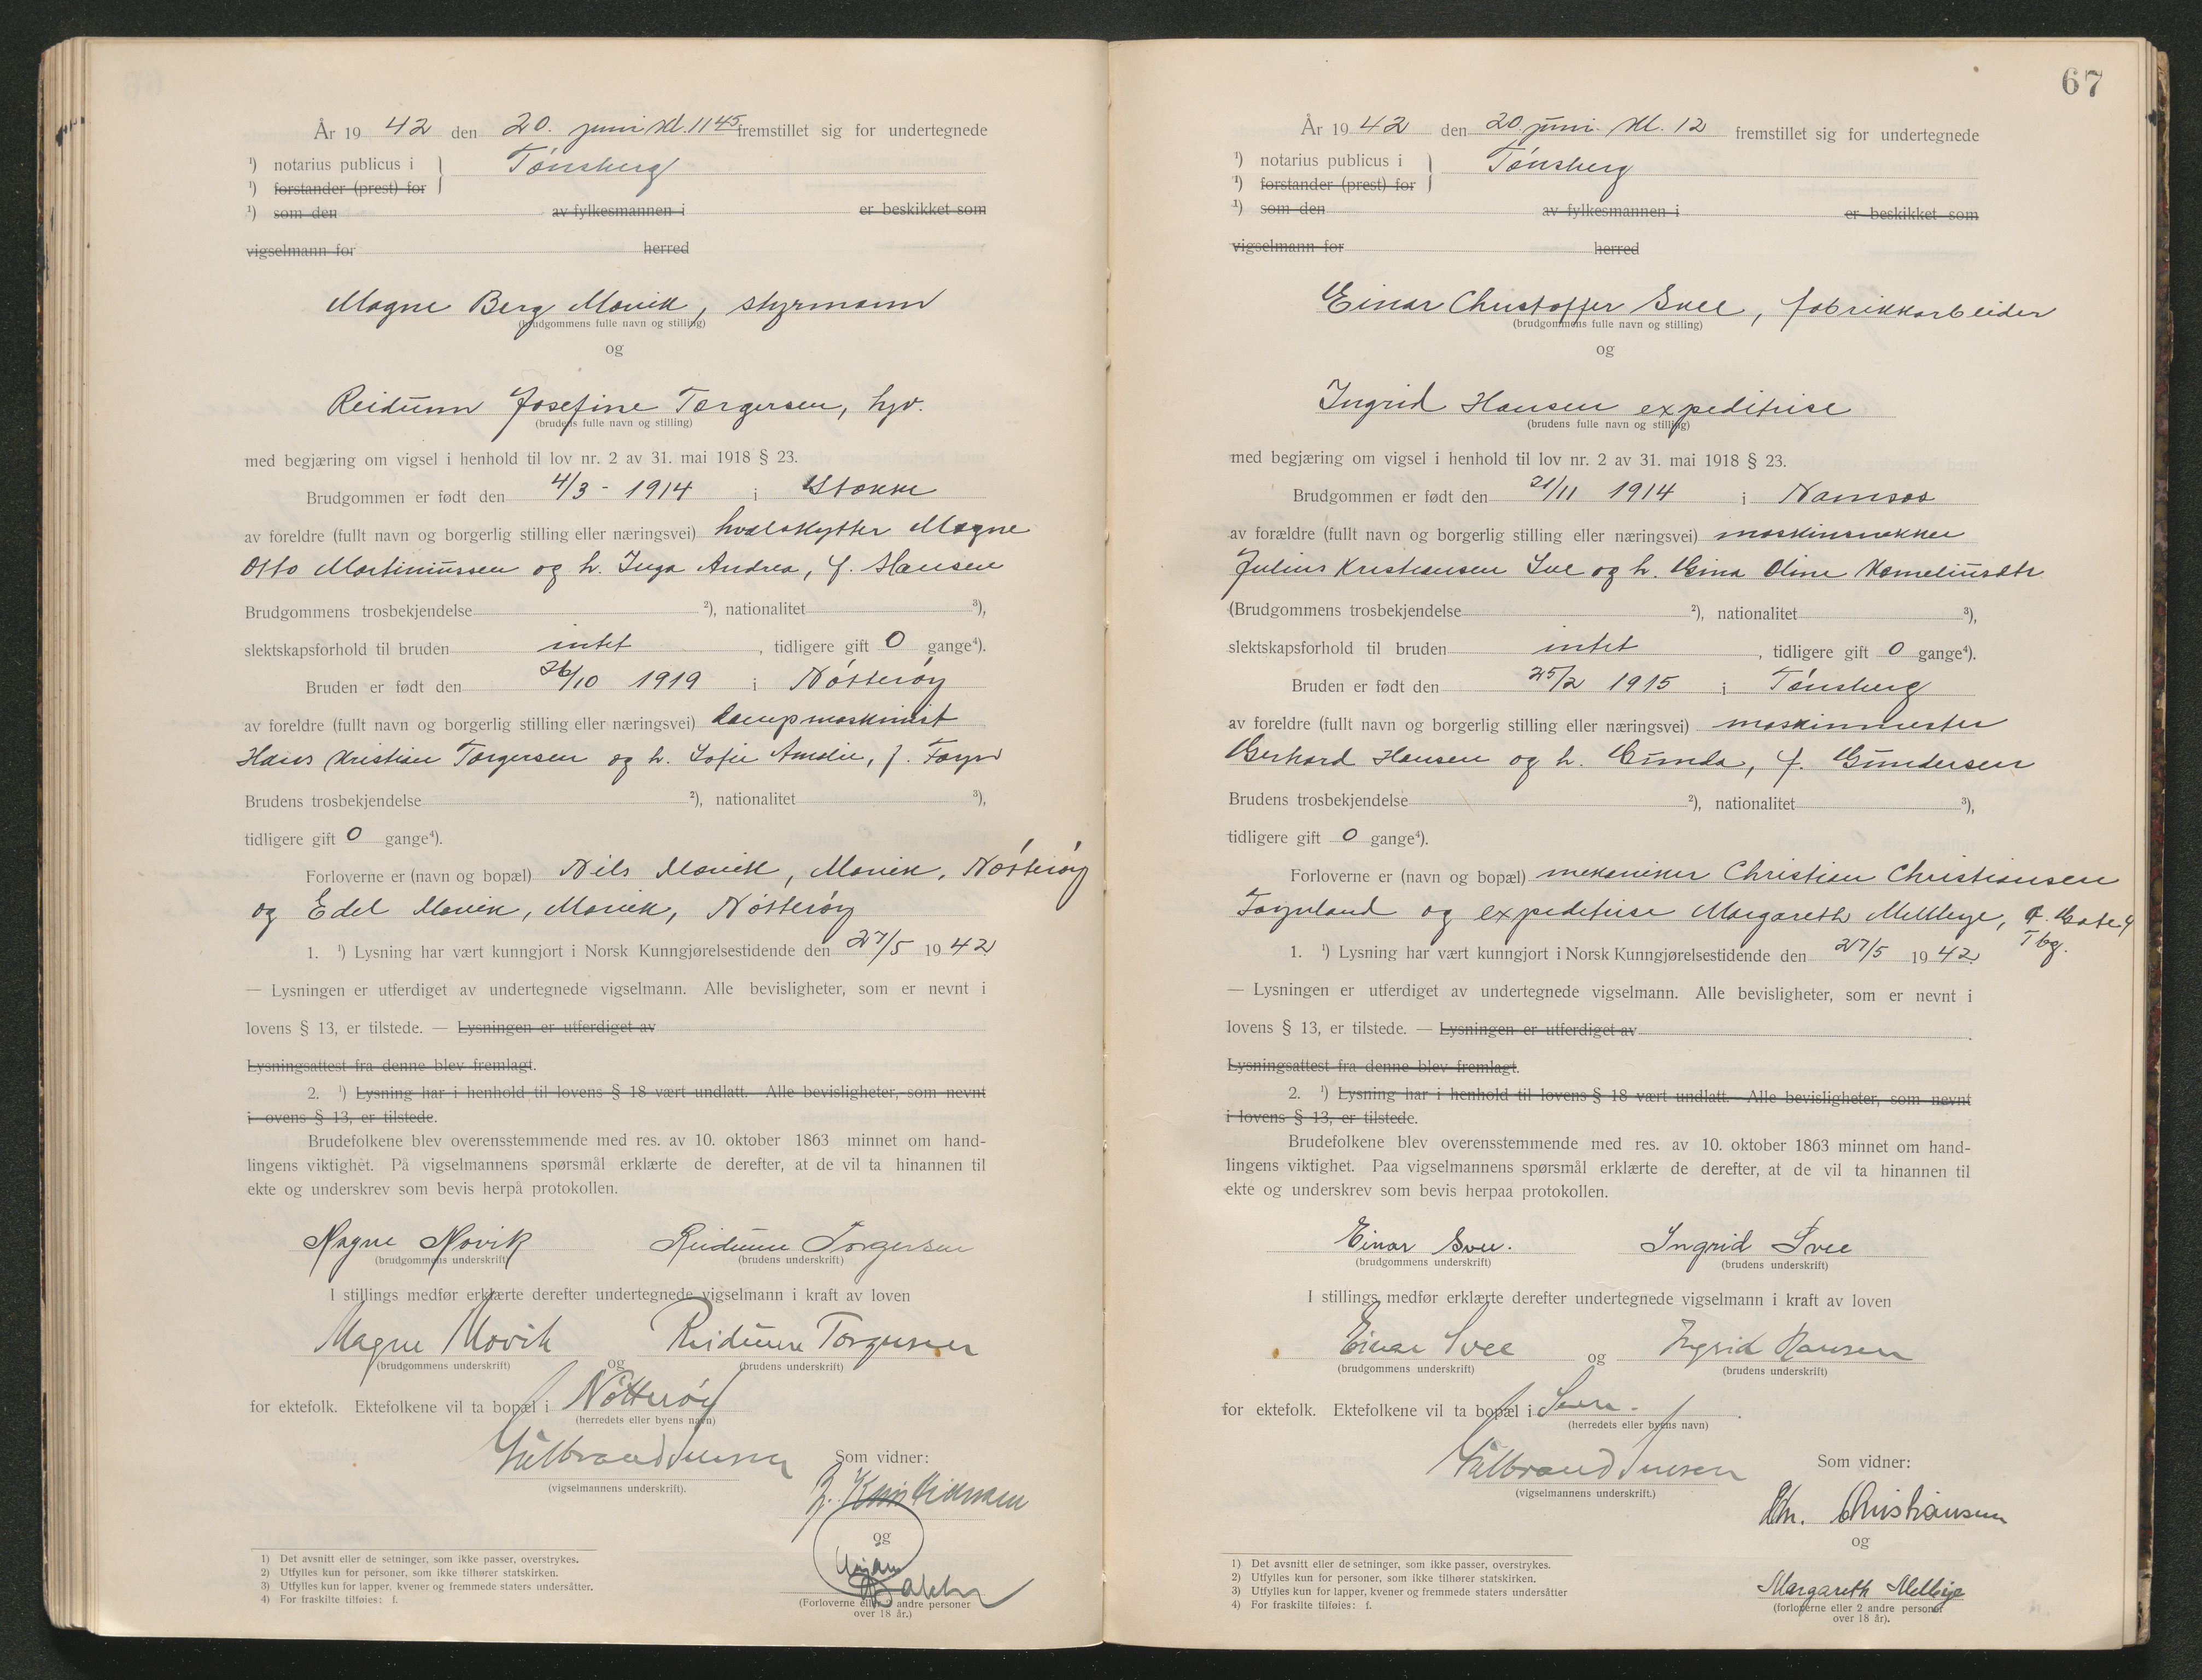 År 19 42 den 20. juni kl. 11 45 fremstillet sig for undertegnede
¹) notarius publicus i } Tønsberg
¹) forstander (prest) for
¹) som den av fylkesmannen i er beskikket som
vigselmann for herred
Magne Berg Movik, styrmann
(brudgommens fulle navn og stilling)
og
Reidunn Josefine Torgersen, hjv.
(brudens fulle navn og stilling)
med begjæring om vigsel i henhold til lov nr. 2 av 31. mai 1918 § 23.
Brudgommen er født den 4/3 - 1914 i Stokke
av foreldre (fullt navn og borgerlig stilling eller næringsvei) hvalskytter Magne
Otto Martiniussen og h. Inga Andrea, f. Hansen
Brudgommens trosbekjendelse ²), nationalitet ³),
slektskapsforhold til bruden intet, tidligere gift 0 gange⁴).
Bruden er født den 26/10 1919 i Nøtterøy
av foreldre (fullt navn og borgerlig stilling eller næringsvei) dampmaskinist
Hans Kristian Torgersen og h. Sofie Amalie, f. Foyn
Brudens trosbekjendelse ²), nationalitet ³),
tidligere gift 0 gange⁴).
Forloverne er (navn og bopæl) Nils Movik, Movik, Nøtterøy
og Edel Movik, Movik, Nøtterøy
1. ¹) Lysning har vært kunngjort i Norsk Kunngjørelsestidende den 27/5 19 42
— Lysningen er utferdiget av undertegnede vigselmann. Alle bevisligheter, som er nevnt i
lovens § 13, er tilstede. — Lysningen er utferdiget av
Lysningsattest fra denne blev fremlagt.
2. ¹) Lysning har i henhold til lovens § 18 vært undlatt. Alle bevisligheter, som nevnt
i ovens § 13, er tilstede.
Brudefolkene blev overensstemmende med res. av 10. oktober 1863 minnet om hand-
lingens viktighet. På vigselmannens spørsmål erklærte de derefter, at de vil ta hinannen til
ekte og underskrev som bevis herpå protokollen.
Magne Movik Reidunn Torgersen
(brudgommens underskrift) (brudens underskrift)
I stillings medfør erklærte derefter undertegnede vigselmann i kraft av loven
Magne Movik og Reidunn Torgersen
(brudgommens underskrift) (brudens underskrift)
for ektefolk. Ektefolkene vil ta bopæl i Nøtterøy
(herredets eller byens navn)
(vigselmannens underskrift).
Som vidner:
og
(Forloverne eller 2 andre personer
over 18 år.)
1) Det avsnitt eller de setninger, som ikke passer, overstrykes.
2) Utfylles kun for personer, som ikke tilhører statskirken.
3) Utfylles kun for lapper, kvener og fremmede staters undersåtter.
4) For fraskilte tilføies: f.
67
År 19 42 den 20 juni. kl. 12 fremstillet sig for undertegnede
¹) notarius publicus i } Tønsberg
¹) forstander (prest) for
¹) som den av fylkesmannen i er beskikket som
vigselmann for herred
Einar Christoffer Svee, fabrikkarbeider
(brudgommens fulle navn og stilling)
og
Ingrid Hansen expeditrise
(brudens fulle navn og stilling)
med begjæring om vigsel i henhold til lov nr. 2 av 31. mai 1918 § 23.
Brudgommen er født den 21/11 1914 i Namsos
av forældre (fullt navn og borgerlig stilling eller næringsvei) maskinsnekker
Julius Kristiansen Svee og h. Gina Oline Korneliusdtr
(Brudgommens trosbekjendelse ²), nationalitet ³),
slektskapsforhold til bruden intet, tidligere gift 0 gange⁴).
Bruden er født den 25/2 1915 i Tønsberg
av foreldre (fullt navn og borgerlig stilling eller næringsvei) maskinmester
Gerhard Hansen og h. Gunda, f. Gundersen
Brudens trosbekjendelse ²), nationalitet ³),
tidligere gift 0 gange⁴).
Forloverne er (navn og bopæl) mekaniker Christian Christiansen
Foynland og expeditrise Margareth Mellbye, Gate 4
Tbg.
1. ¹) Lysning har vært kunngjort i Norsk Kunngjørelsestidende den 27/5 19 42.
— Lysningen er utferdiget av undertegnede vigselmann. Alle bevisligheter, som er nevnt i
lovens § 13, er tilstede. — Lysningen er utferdiget av
Lysningsattest fra denne blev fremlagt.
2. ¹) Lysning har i henhold til lovens § 18 vært undlatt. Alle bevisligheter, som nevnt
i lovens § 13, er tilstede.
Brudefolkene blev overensstemmende med res. av 10. oktober 1863 minnet om hand-
lingens viktighet. Paa vigselmannens spørsmål erklærte de derefter, at de vil ta hinannen til
ekte og underskrev som bevis herpaa protokollen.
Einar Svee. Ingrid Svee
(brudgommens underskrift) (brudens underskrift)
I stillings medfør erklærte derefter undertegnede vigselmann i kraft av loven
Einar Svee og Ingrid Hansen
(brudgommens underskrift) (brudens underskrift)
for ektefolk. Ektefolkene vil ta bopæl i Sem.
(herredets eller byens navn)
(vigselmannens underskrift.)
Som vidner:
Chr. Christiansen
og
Margareth Mellbye
(forloverne eller 2 andre personer
over 18 år).
1) Det avsnitt eller de setninger, som ikke passer, overstrykes.
2) Utfylles kun for personer, som ikke tilhører statskirken.
3) Utfylles kun for lapper, kvener og fremmede staters undersåtter
4) For fraskilte tilføies: f.